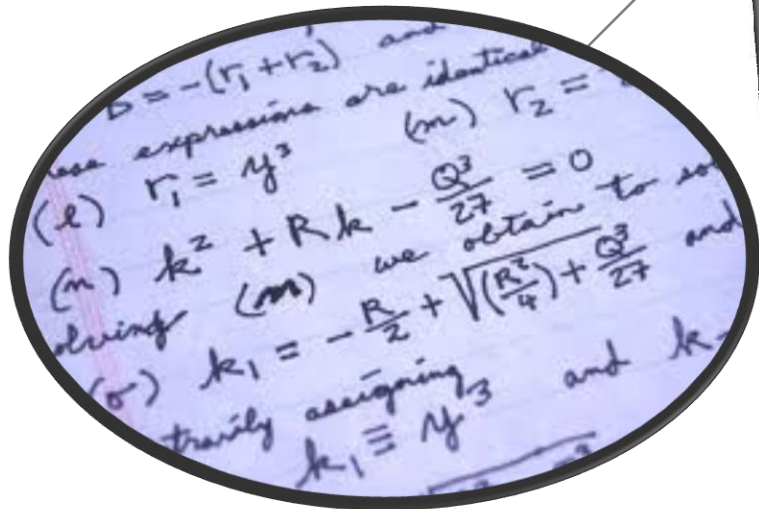 b = -(r₁ + r₂) and
expressions are identical
(l) r₁ = y³ (m) r₂ =
(n) k² + Rk - Q³/27 = 0
olving (m) we obtain to
(o) k₁ = -R/2 + √(R²/4) + Q³/27 and
trarily assigning
k₁ ≡ y³ and k-